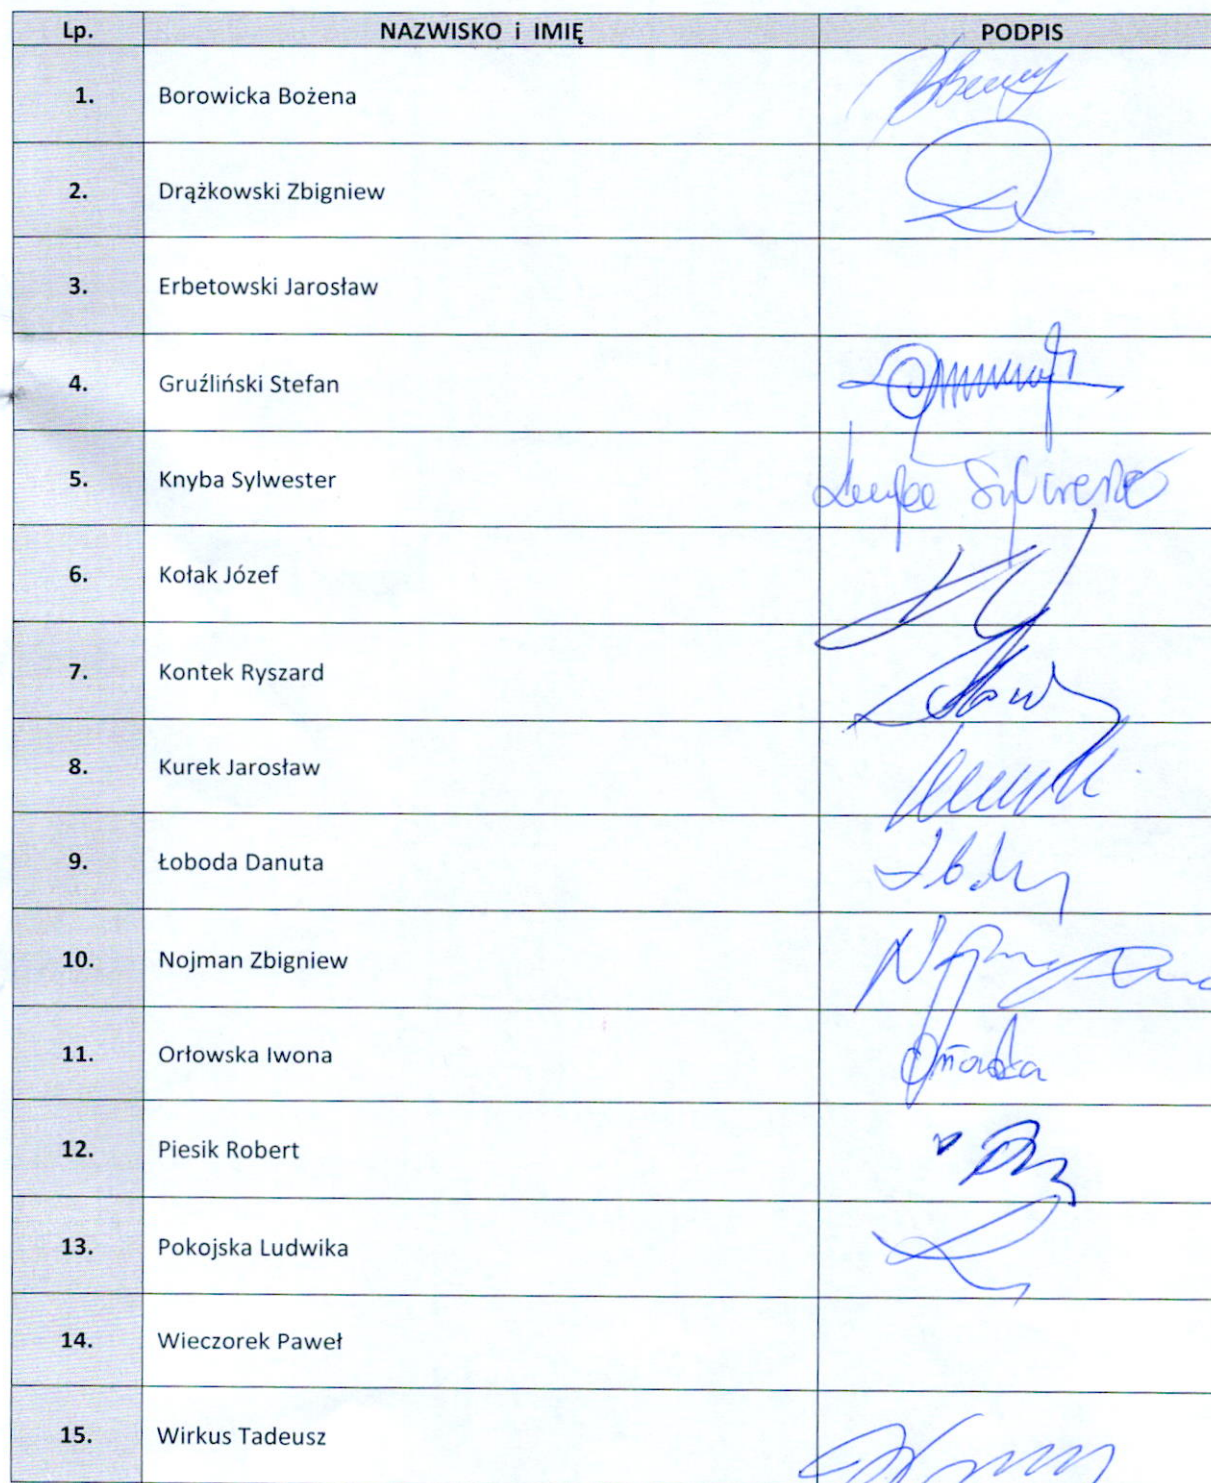 Lp. NAZWISKO i IMIĘ PODPIS
1. Borowicka Bożena
2. Drążkowski Zbigniew
3. Erbetowski Jarosław
4. Gruźliński Stefan
5. Knyba Sylwester Knyba Sylwester
6. Kołak Józef
7. Kontek Ryszard
8. Kurek Jarosław
9. Łoboda Danuta
10. Nojman Zbigniew
11. Orłowska Iwona Orłowska
12. Piesik Robert
13. Pokojska Ludwika
14. Wieczorek Paweł
15. Wirkus Tadeusz